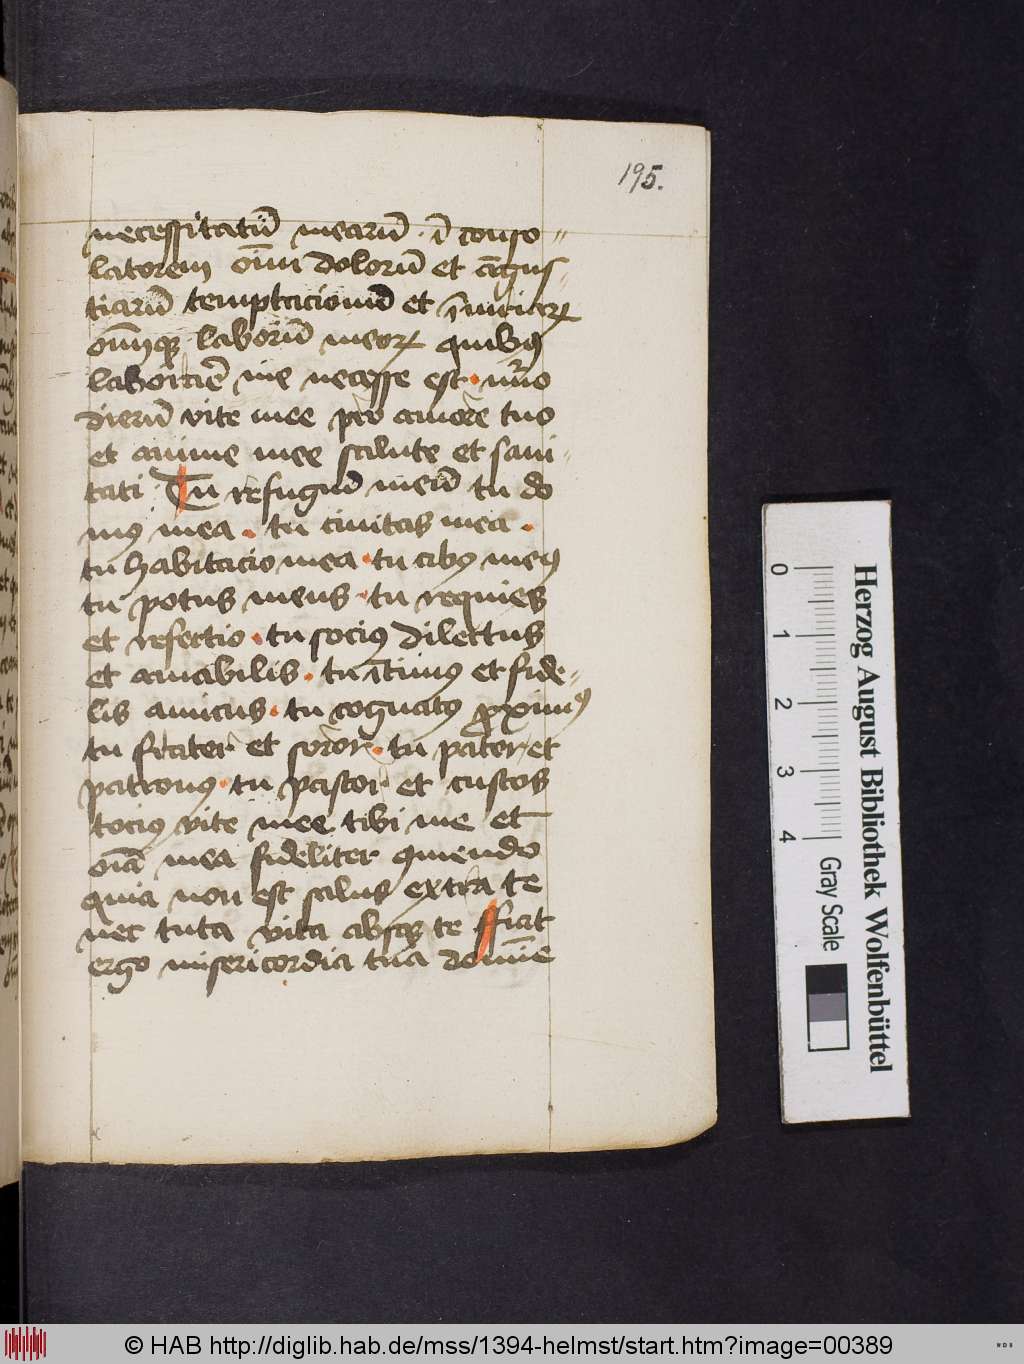 195.
necessitatū mearū · ī conso〃
latorem oīm dolorū et āgus〃
tiarū temptacionū et īniuriaꝝ
oīmqꝫ laborū meoꝝ quibꝰ
me necesse est · nūo
dierū vite mee pro amore tuo
et anime mee salute et sani〃
tati · Tu refugiū meū tu do
mꝰ mea · tu ciuitas mea ·
tu habitacio mea · tu cibꝰ meꝰ
tu potus meus · tu requies
et refectio · tu sociꝰ dilectus
et amabilis · tu ītimꝰ et fide〃
lis amicus · tu cognatꝰ ꝓximꝰ
tu frater et soror · tu pater et
patronꝰ · tu pastor et custos
tociꝰ vite mee tibi me et
oīa mea fideliter
quia non est salus extra te
nec tuta vita absqꝫ te ffiat
ergo misericordia tua domīe
Herzog August Bibliothek Wolfenbüttel
0 1 2 3 4
Gray Scale
© HAB http://diglib.hab.de/mss/1394-helmst/start.htm?image=00389